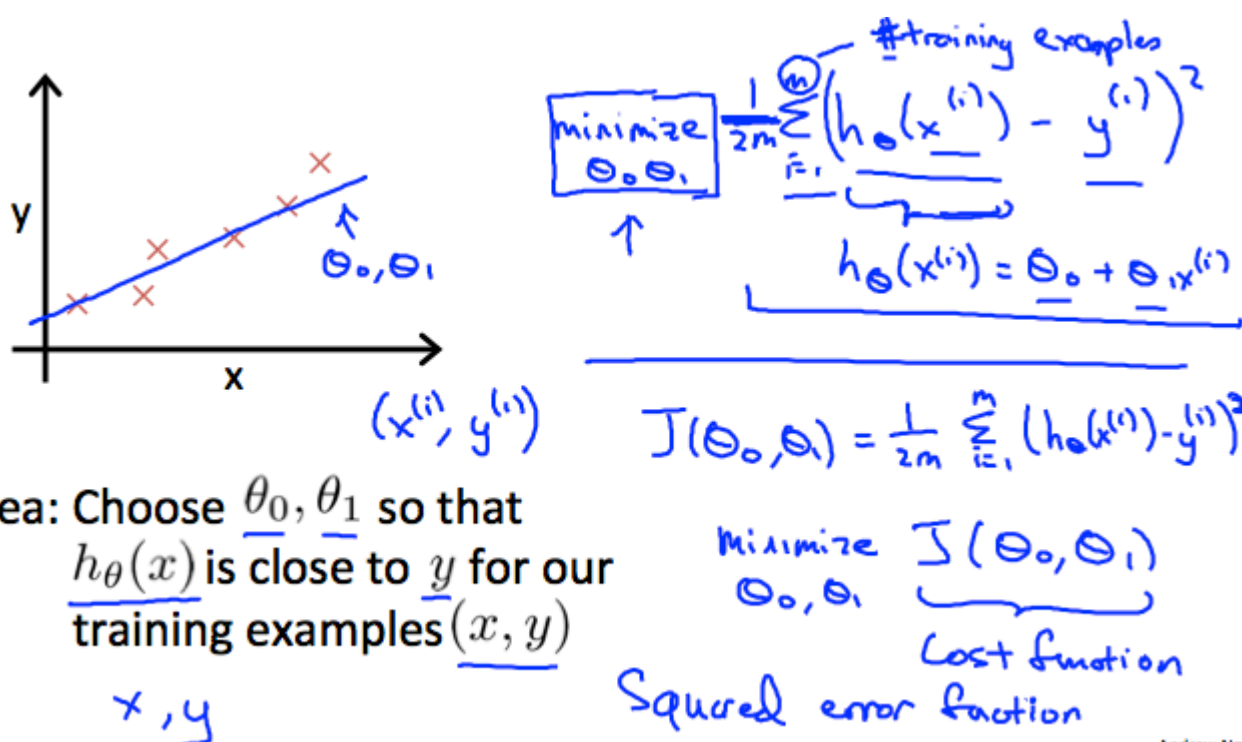 y
x
θ₀, θ₁
(x⁽ⁱ⁾, y⁽ⁱ⁾)
ea: Choose θ₀, θ₁ so that
h_θ(x) is close to y for our
training examples (x, y)
x, y
# training examples
minimize
θ₀ θ₁
1/2m Σ_{i=1}^{m} (h_θ(x⁽ⁱ⁾) - y⁽ⁱ⁾)²
h_θ(x⁽ⁱ⁾) = θ₀ + θ₁x⁽ⁱ⁾
J(θ₀, θ₁) = 1/2m Σ_{i=1}^{m} (h_θ(x⁽ⁱ⁾) - y⁽ⁱ⁾)²
minimize J(θ₀, θ₁)
θ₀, θ₁
Cost function
Squared error function